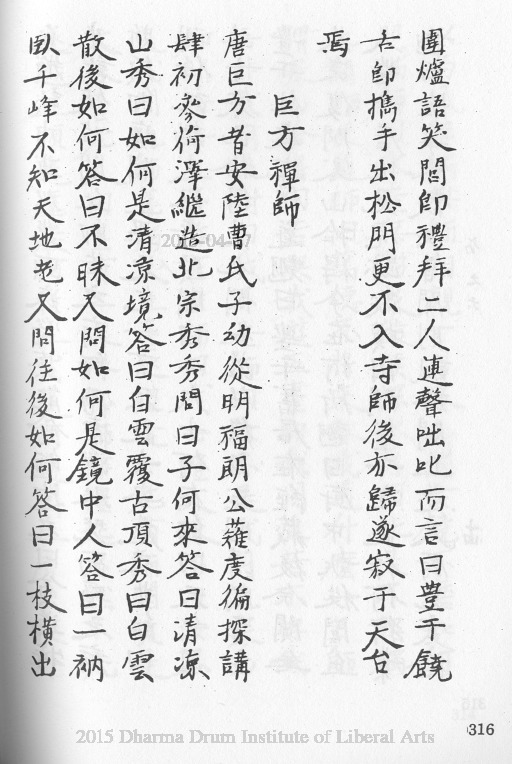 圍爐語笑閭即禮拜二人連聲咄叱而言曰豐干饒
舌即携手出松門更不入寺師後亦歸遂寂于天台
焉
巨方禪師
唐巨方者安陸曹氏子幼從明福朗公薙度徧探講
肆初參荷澤繼造北宗秀秀問曰子何來答曰清凉
山秀曰如何是清凉境答曰白雲覆古頂秀曰白雲
散後如何答曰不昧又問如何是鏡中人答曰一衲
臥千峰不知天地老又問往後如何答曰一枝橫出
2015 Dharma Drum Institute of Liberal Arts
316